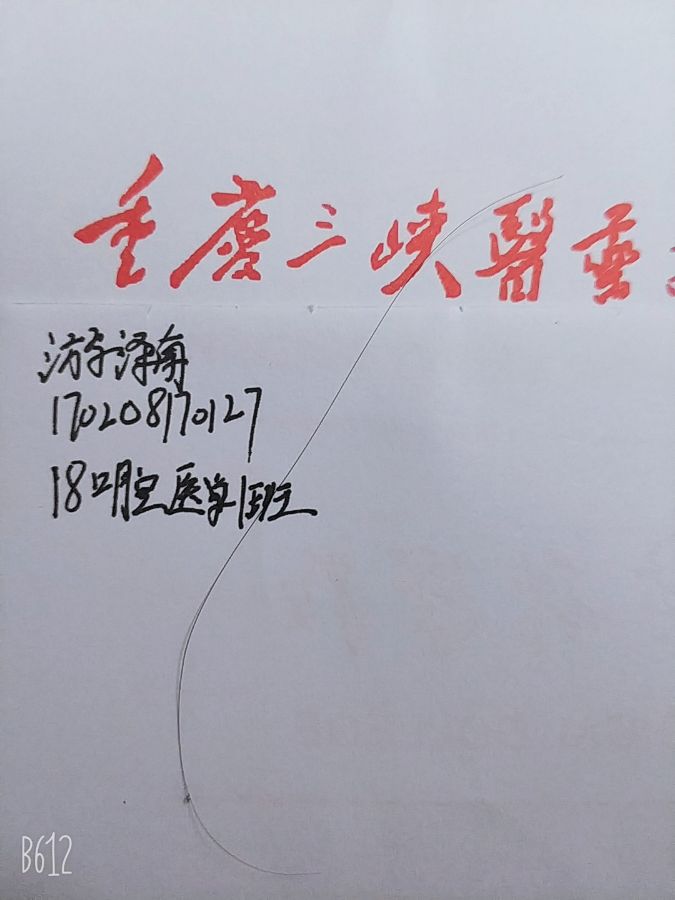 重慶三峡醫藥
游子泽南
170208170127
18口腔医学1班
B612